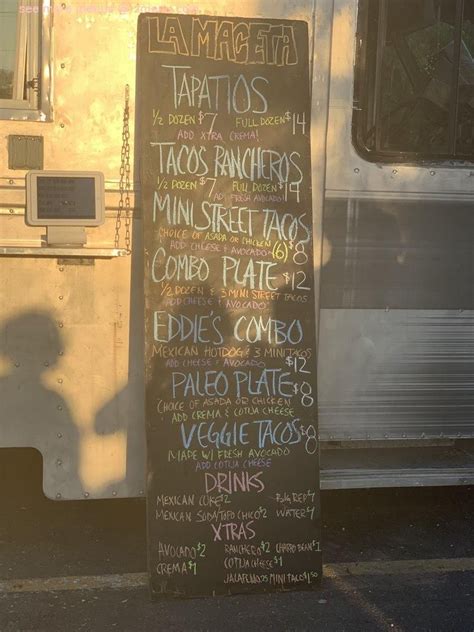 LA MACETA
TAPATIOS
1/2 DOZEN $7 FULL DOZEN $14
ADD XTRA CREMA!
TACOS RANCHEROS
1/2 DOZEN $7 FULL DOZEN $14
ADD FRESH AVOCADO!
MINI STREET TACOS
CHOICE OF ASADA OR CHICKEN (6) $8
ADD CHEESE & AVOCADO
COMBO PLATE $12
1/2 DOZEN & 3 MINI STREET TACOS
ADD CHEESE & AVOCADO
EDDIE'S COMBO
MEXICAN HOTDOG & 3 MINI TACOS
ADD CHEESE & AVOCADO $12
PALEO PLATE $8
CHOICE OF ASADA OR CHICKEN
ADD CREMA & COTIJA CHEESE
VEGGIE TACOS $8
MADE W/ FRESH AVOCADO
ADD COTIJA CHEESE
DRINKS
MEXICAN COKE $2
MEXICAN SODA/TOPO CHICO $2 WATER $1
XTRAS
AVOCADO $2 RANCHERO $2 CHARRO BEAN $1
CREMA $1 COTIJA CHEESE $1
JALAPENO MINI TACO $1.50